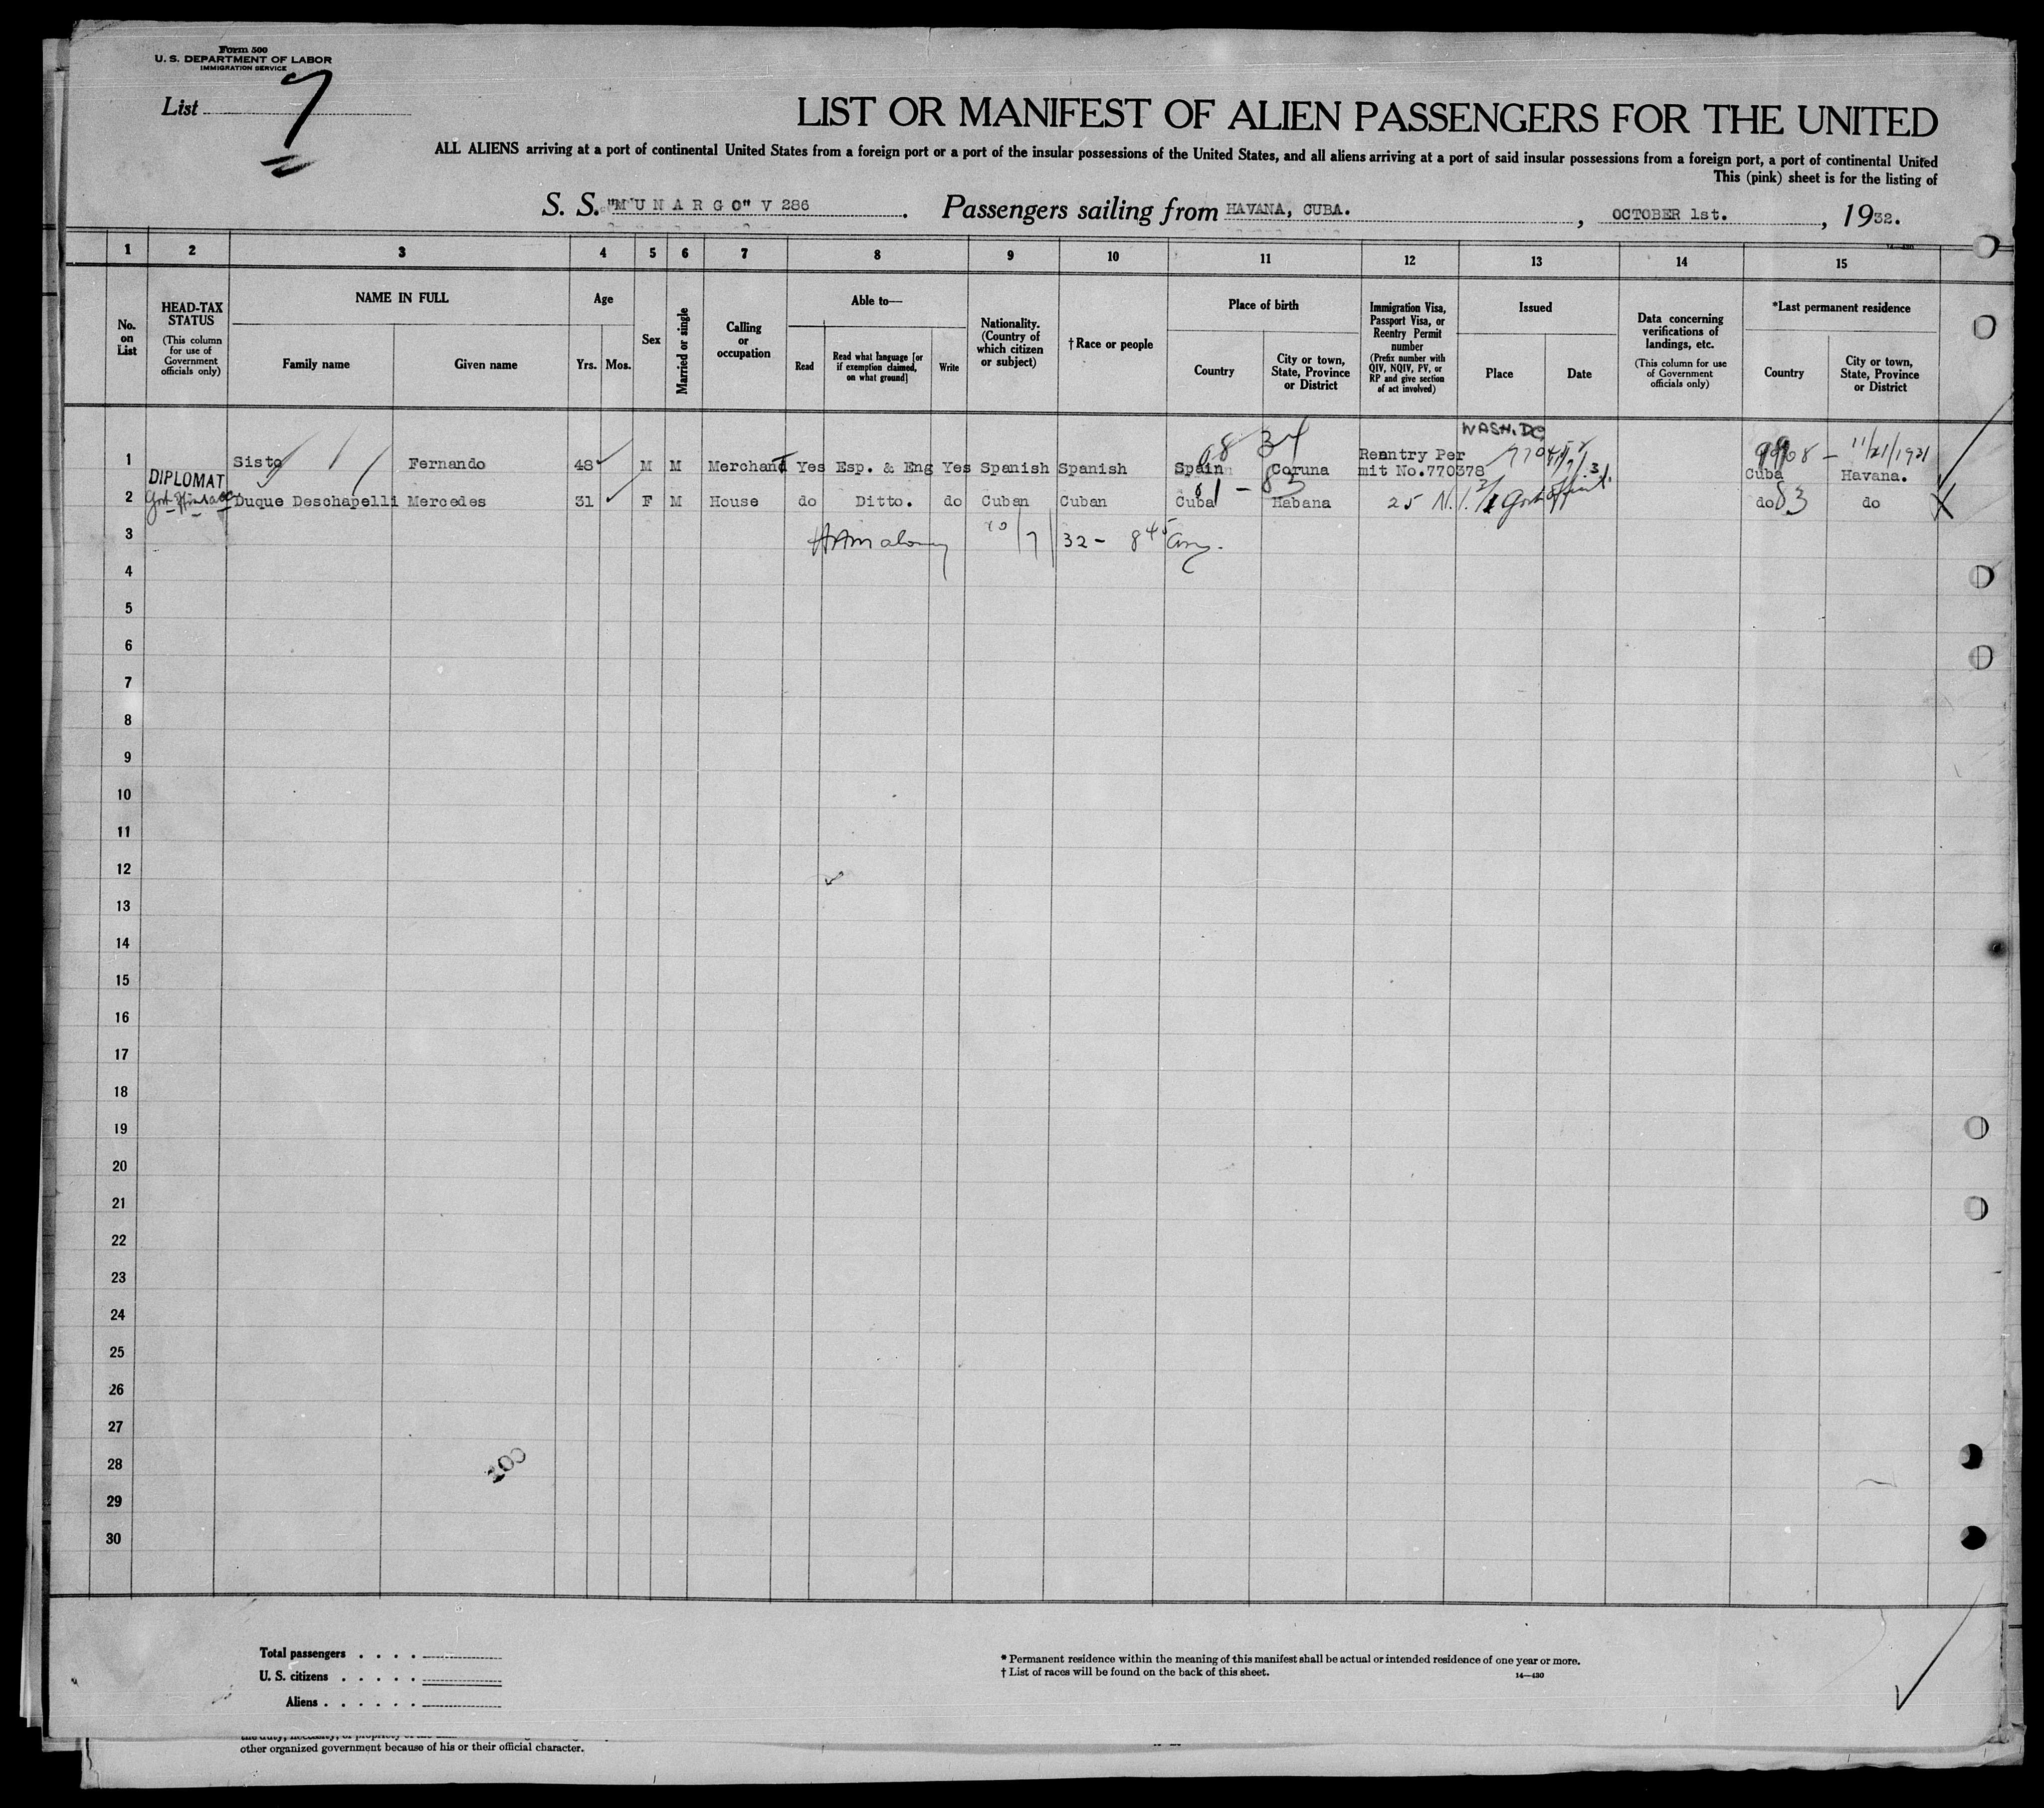 Form 500
U. S. DEPARTMENT OF LABOR
IMMIGRATION SERVICE
List 7
LIST OR MANIFEST OF ALIEN PASSENGERS FOR THE UNITED
ALL ALIENS arriving at a port of continental United States from a foreign port or a port of the insular possessions of the United States, and all aliens arriving at a port of said insular possessions from a foreign port, a port of continental United
This (pink) sheet is for the listing of
S. S. "M U N A R G O" V 286. Passengers sailing from HAVANA, CUBA. , OCTOBER 1st. , 1932.
1 2 3 4 5 6 7 8 9 10 11 12 13 14 15
No. on List
HEAD-TAX STATUS
(This column for use of Government officials only)
NAME IN FULL
Family name
Given name
Age
Yrs. Mos.
Sex
Married or single
Calling or occupation
Able to—
Read
Read what language [or if exemption claimed, on what ground]
Write
Nationality. (Country of which citizen or subject)
†Race or people
Place of birth
Country
City or town, State, Province or District
Immigration Visa, Passport Visa, or Reentry Permit number
(Prefix number with QIV, NQIV, PV, or RP and give section of act involved)
Issued
Place
Date
Data concerning verifications of landings, etc.
(This column for use of Government officials only)
*Last permanent residence
Country
City or town, State, Province or District
WASH. DC
98 34
9908 - 11/21/1921
1 Sisto Fernando 48 M M Merchant Yes Esp. & Eng Yes Spanish Spanish Spain Coruna Reentry Permit No.770378 Cuba Havana.
DIPLOMAT
81 - 83
2 Duque Deschapelli Mercedes 31 F M House do Ditto. do Cuban Cuban Cuba Habana 25 do 83 do
3 10/7/32 - 8 45 am.
4
5
6
7
8
9
10
11
12
13
14
15
16
17
18
19
20
21
22
23
24
25
26
27
28
29
30
100
Total passengers . . . .
U. S. citizens . . . . .
Aliens . . . . . .
* Permanent residence within the meaning of this manifest shall be actual or intended residence of one year or more.
† List of races will be found on the back of this sheet.
14—430
other organized government because of his or their official character.